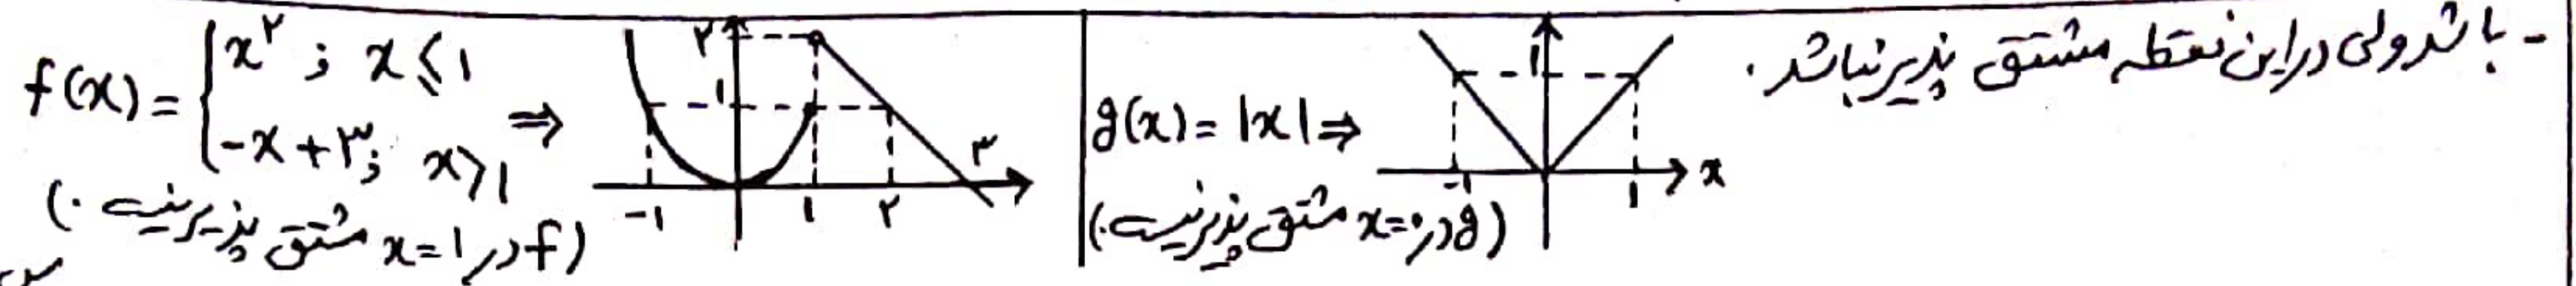 - باشد ولی در این نقطه مشتق پذیر نباشد.
g(x) = |x| ⇒
۱
-۱ ۱ x
(g در x=۰ مشتق پذیر نیست.)
f(x) = { x^۲ ; x ≤ ۱
-x + ۳ ; x > ۱ ⇒
۲
۱
۳
-۱ ۱ ۲
(f در x=۱ مشتق پذیر نیست.)